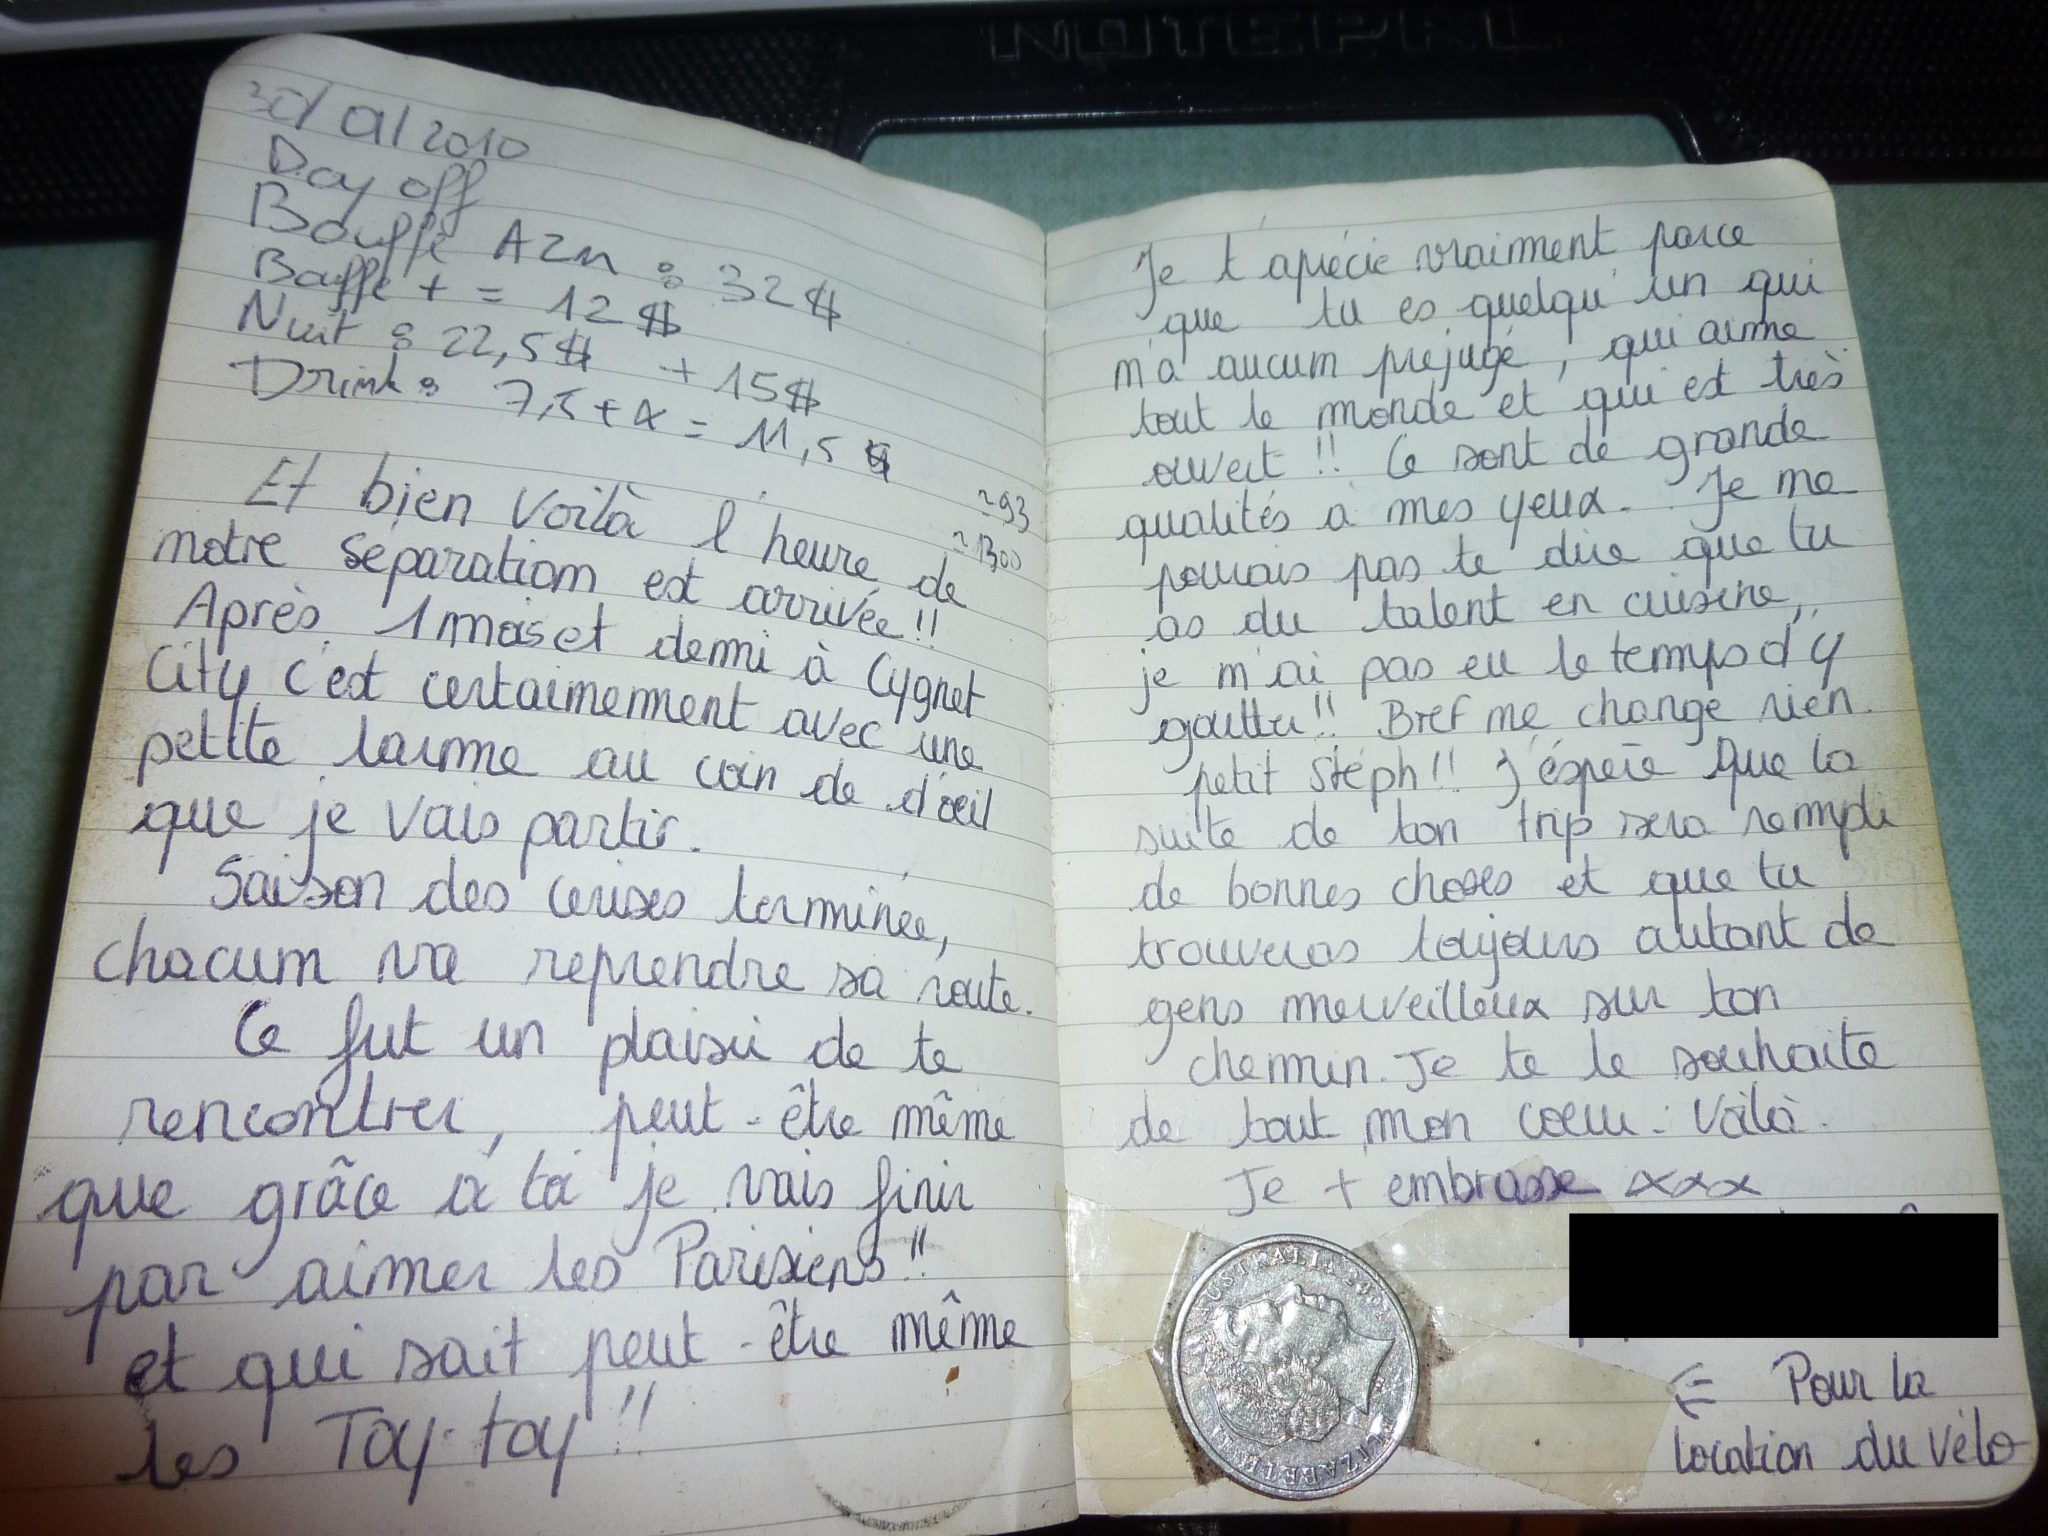 NOTEPAL
30/01/2010
Day off
Bouffe AZM : 32$
Bouffe + = 12$
Nuit : 22,5$ + 15$
Drink : 7,5+4 = 11,5 $
~93
~1300
Et bien Voilà l'heure de
notre séparation est arrivée!!
Après 1 mois et demi à Cygnet
City c'est certainement avec une
petite larme au coin de d'oeil
que je vais partir.
Saison des cerises terminée,
chacun va reprendre sa route.
Ce fut un plaisir de te
rencontrer, peut-être même
que grâce à toi je vais finir
par aimer les Parisiens!!
et qui sait peut-être même
les Toy-toy!!
Je t'apiécie vraiment parce
que tu es quelqu'un qui
n'a aucun préjugé, qui aime
tout le monde et qui est très
ouvert!! Ce sont de grande
qualités à mes yeux. Je ne
pouvais pas te dire que tu
as du talent en cuisine,
je n'ai pas eu le temps d'y
goutter!! Bref ne change rien.
petit Stéph!! J'éspère que la
suite de ton trip sera rempli
de bonnes choses et que tu
trouveras toujours autant de
gens merveilleux sur ton
chemin. Je te le souhaite
de tout mon coeur. Voilà.
Je t embrasse xxx
ELIZABETH II AUSTRALIA
⇐ Pour la
location du vélo